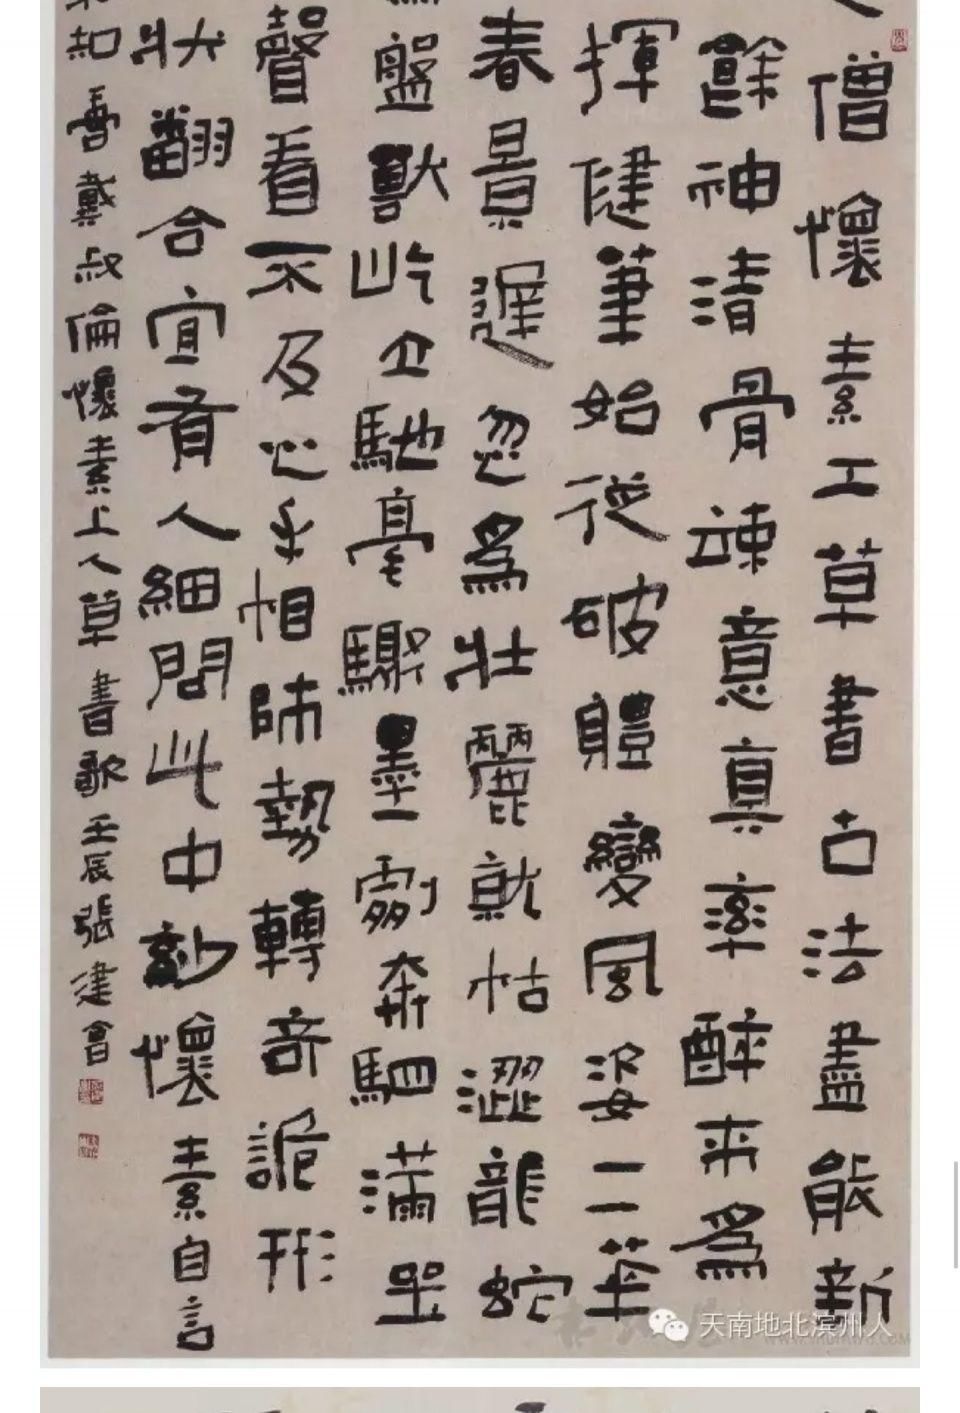 僧懷素工草書古法盡能新
餘神清骨竦意真率醉來為
揮健筆始從破體變風姿一一華
春景遲忽為壯麗就枯澀龍蛇
盤獸屹立馳毫驟墨劇奔駟滿坐
聲看不及心手相師勢轉奇詭形
狀翻合宜有人細問此中妙懷素自言
知唐戴叔倫懷素上人草書歌壬辰張建會
天南地北滨州人